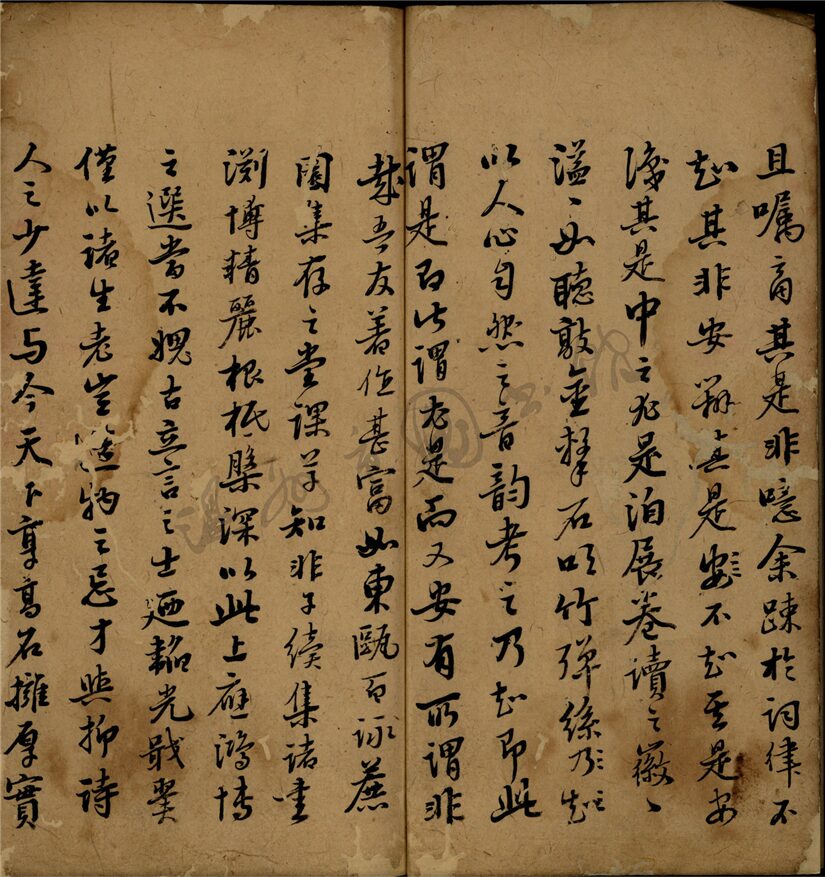 且嘱商其是非噫余踈於词律不
知其非安辨其是安〻不知其是安
其是中之尤是洎展卷讀之徽〻
溢〻如聽敲金擊石吹竹彈絲乃〻知〻
以人心自然之音韵考之乃知即此
謂是即此謂尤是而又安有所謂非
哉吾友著作甚富如東甌百詠蔗
園集存之堂課草知非子續集諸書
渊博精麗根柢槃深以此上應鴻博
之選當不媿古立言之士廼韜光戢翼
僅以諸生老豈造物之忌才與抑詩
人之少達与今天下享高名擁厚實